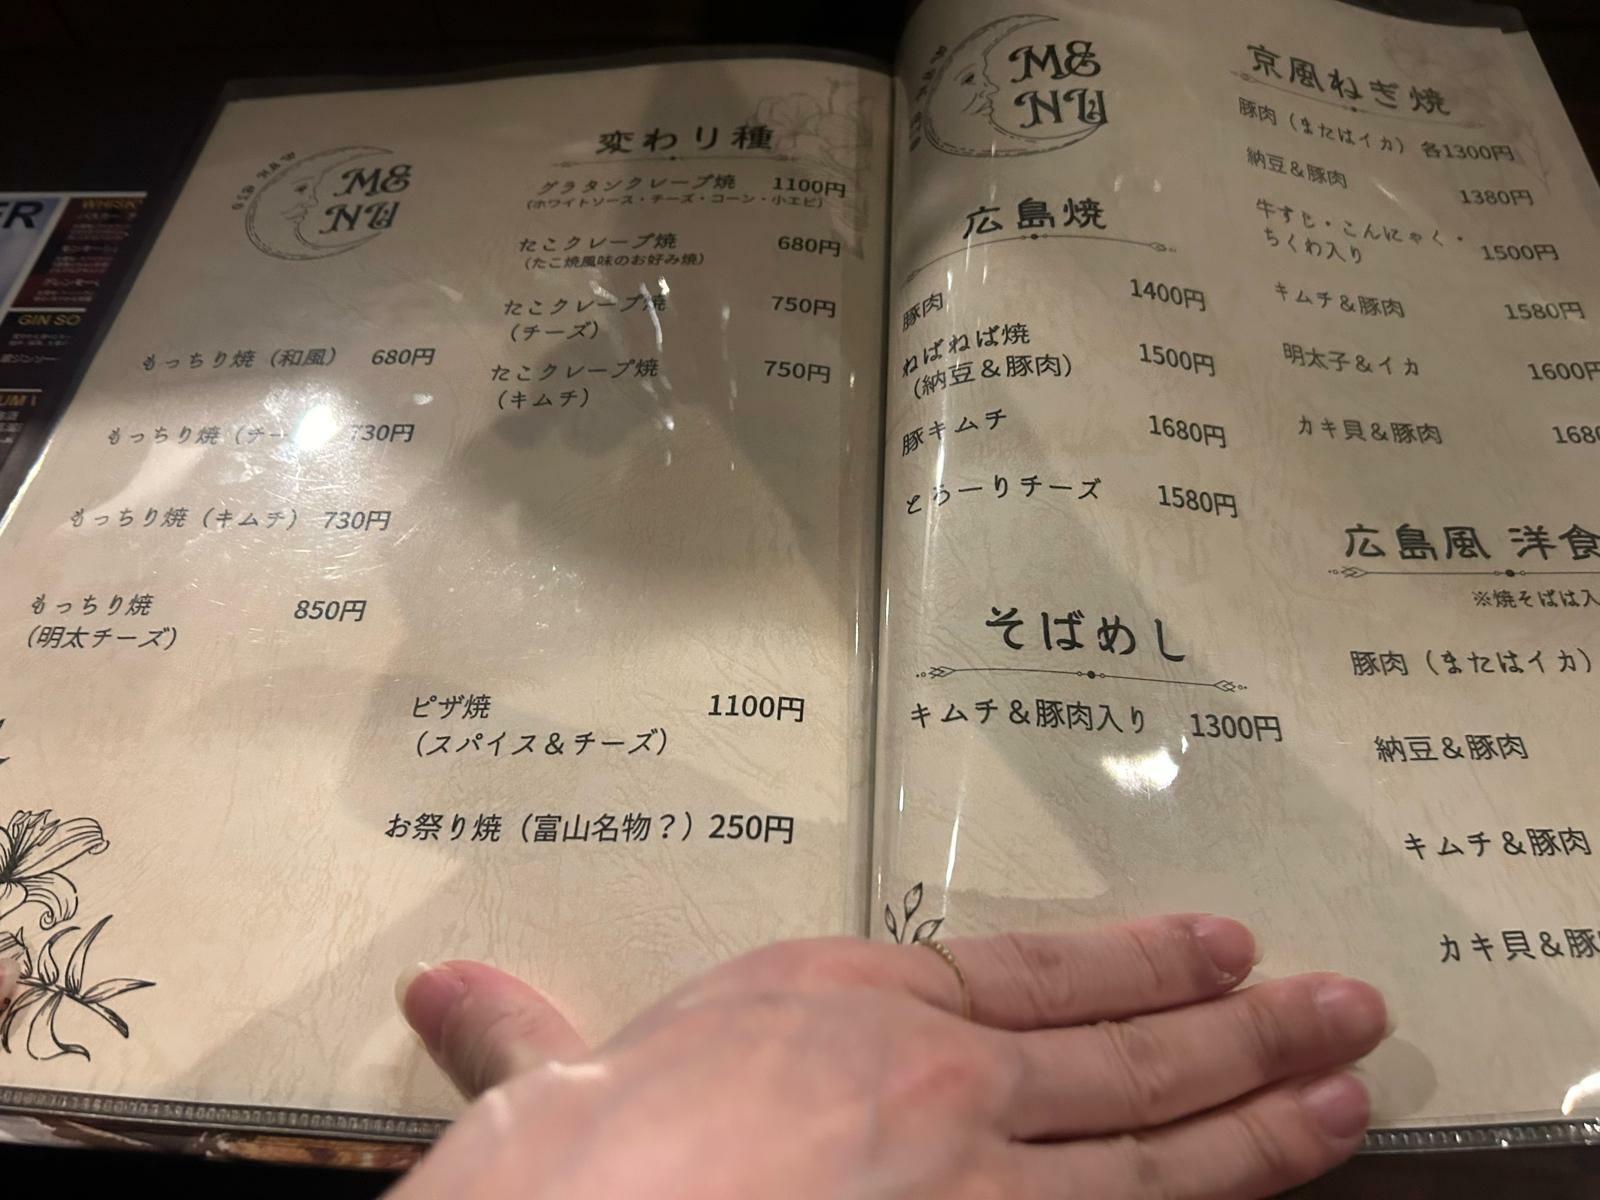 ME
NU
変わり種
グラタンクレープ焼 1100円
(ホワイトソース・チーズ・コーン・小エビ)
たこクレープ焼 680円
(たこ焼風味のお好み焼)
たこクレープ焼 750円
(チーズ)
たこクレープ焼 750円
(キムチ)
もっちり焼(和風) 680円
もっちり焼(チー 730円
もっちり焼(キムチ) 730円
もっちり焼 850円
(明太チーズ)
ピザ焼 1100円
(スパイス&チーズ)
お祭り焼(富山名物?)250円
ME
NU
広島焼
豚肉 1400円
ねばねば焼 1500円
(納豆&豚肉)
豚キムチ 1680円
とろーりチーズ 1580円
そばめし
キムチ&豚肉入り 1300円
京風ねぎ焼
豚肉(またはイカ) 各1300円
納豆&豚肉 1380円
牛すじ・こんにゃく・ 1500円
ちくわ入り
キムチ&豚肉 1580円
明太子&イカ 1600円
カキ貝&豚肉 168
広島風 洋食
※焼そばは入
豚肉(またはイカ)
納豆&豚肉
キムチ&豚肉
カキ貝&豚
ER
WHISK
GIN SO
UM